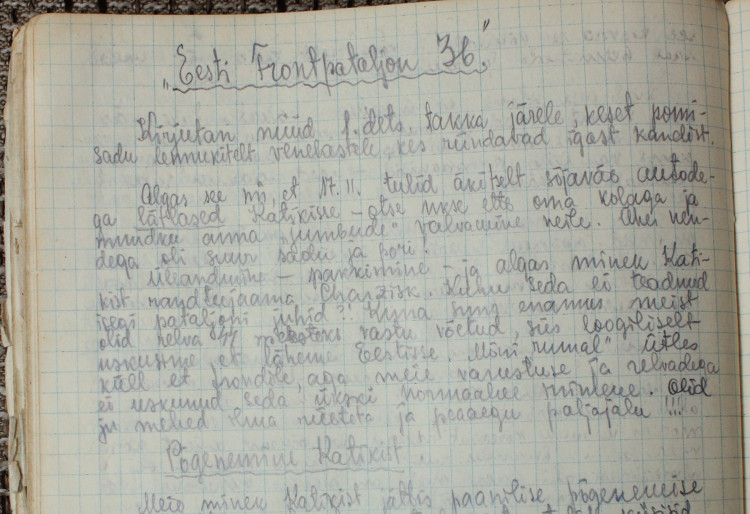 „Eesti Frontpataljon 36."
Kirjutan nüüd 1. dets. takka järele, keset pommi-
sadu lennukitelt venelastele, kes ründavad igast kandist.
Algas see nii, et 17.11. tulid äkitselt sõjaväe autode-
ga lätlased Katikisse – otse ukse ette oma kolaga ja
muudku anna „jumbude" valvamine neile. Ühes nen-
dega oli suur sadu ja pori!
Üleandmine – pakkimine – ja algas minek Kati-
kist raudteejaama Charzisk. Kuhu seda ei teadnud
isegi pataljoni juhid?! Kuna enamus meist
olid relva vastu võetud, siis loogiliselt
uskusime et läheme Eestisse. Mõni ütles
küll et frondile, aga meie varustuse ja relvadega
ei uskunud seda ükski normaalne inimene. Olid
ju mehed ilma püksteta ja peaaegu paljajalu!!!
Põgenemine Katikist
Meie minek Katikist jättis paanilise põgenemise